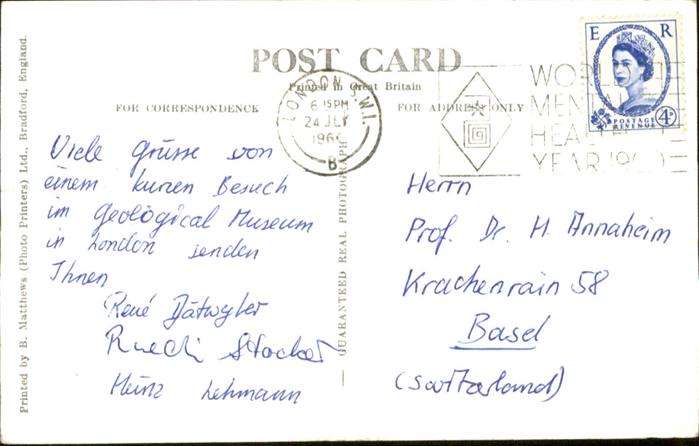 POST CARD
Printed in Great Britain
FOR CORRESPONDENCE
FOR ADDRESS ONLY
LONDON S.W.1
6 15 PM
24 JLY
1960
B
WORLD
MENTAL
HEALTH
YEAR 1960
E R
POSTAGE
REVENUE
4D
Viele Grüsse von
einem kurzen Besuch
im Geological Museum
in London senden
Ihnen
René Dätwyler
Ruedi Stocker
Heinz Lehmann
Herrn
Prof. Dr. H. Annaheim
Krachenrain 58
Basel
(Switzerland)
GUARANTEED REAL PHOTOGRAPH
Printed by B. Matthews (Photo Printers) Ltd., Bradford, England.